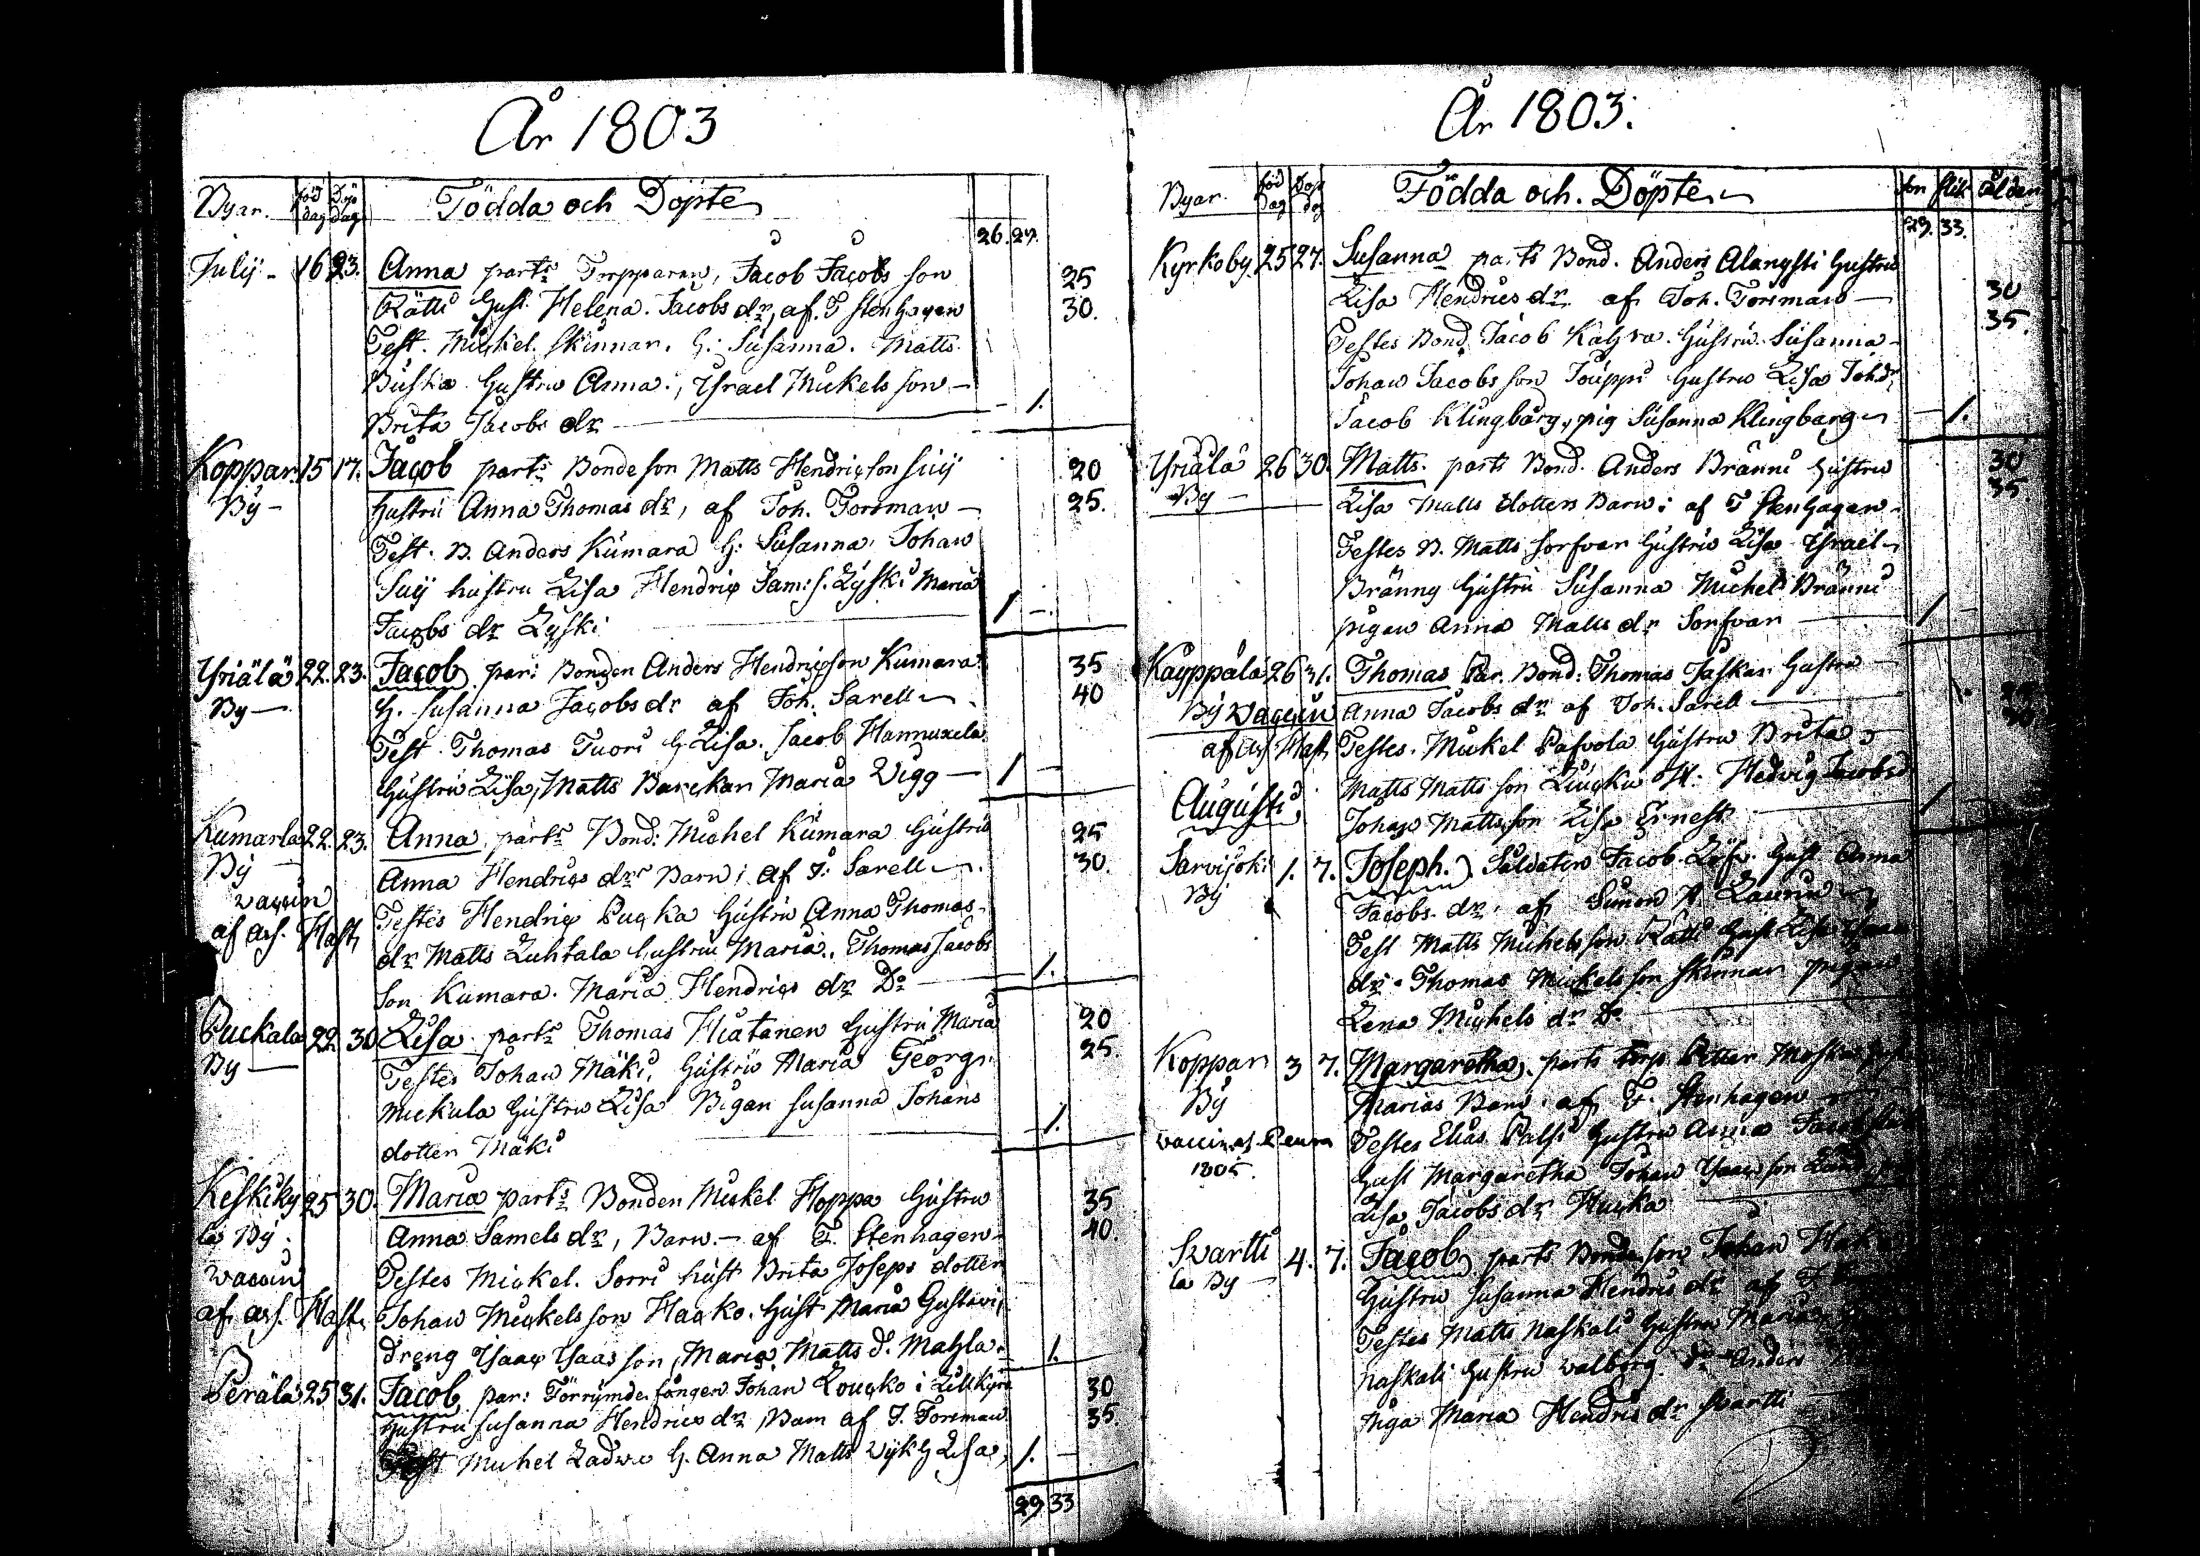 År 1803
Byar. föd dag Döp dag Födda och Döpte
26. 27.
Julij - 16 23. Anna part:s Torpparen, Jacob Jacobs son 25
Rätti Hust. Helena. Jacobs dr, af. J Stenhagen 30.
Test. Mickel. Skinnar. H: Susanna. Matts
Buska Hustru Anna:, Ysrael Mickels son -
Brita Jacobs dr - 1.
Koppar 15 17. Jacob part:s Bonde son Matts Hendricson 20
By - hustru Anna Thomas dr, af Joh. Forsman - 25.
Test. B. Anders Kumara H: Susanna, Johan
hustru Lisa Hendric Sam: s. Lyski Maria
Jacobs dr Lyski 1 -.
Yriälä 22. 23. Jacob par: Bonden Anders Hendricson Kumara 35
By - H. Susanna Jacobs dr af Joh. Sarell 40
Test. Thomas Tuori H Lisa. Jacob Hannuxela
Hustru Lisa, Matts Barckar Maria Vigg - 1 -
Kumarla 22. 23. Anna part:s Bond: Michel Kumara Hustru 25
By Anna Hendrics dr Barn; af J: Sarell 30.
vaccin Testes Hendric Pucka Hustru Anna Thomas
af ars. Hast dr Matts Luhtala hustru Maria., Thomas Jacobs
son Kumara. Maria Hendrics dr Do - 1.
Puckala 22. 30 Lisa part:s Thomas Hiatanen Hustru Maria 20
By - Testes Johan Mäki, Hustru Maria Georg 25.
Mickula Hustru Lisa Pigan Susanna Johans
dotter Mäki - 1.
Keskiky 25 30. Maria part:s Bonden Mickel Hoppa Hustru 35
lä By. Anna Samels dr, Barn. - af J. Stenhagen 40.
vaccin Testes Mickel. Sorri hust Brita Joseps dotter
af ars. Hast Johan Mickels son Hacko. Hust Maria Gustavi,
dreng Ysaac Ysaacs son, Maria Matts d. Mahla. 1.
Perälä 25 31. Jacob, par: Johan Loucko i Lillkyro 30
Hustru Susanna Hendrics dr Barn af J. Forsman 35
Test Michel H. Anna Matts H Lisa, 1. -
29 33
År 1803.
Byar. föd dag Döp dag Födda och. Döpte son flik ålder
29. 33.
Kyrkoby. 25 27. Susanna parts Bond. Anders Alangsti Hustru
Lisa Hendrics dr. af Joh. Forsman - 30
Testes Bond Jacob Kahra. Hustru. Susanna - 35.
Johan Jacobs son Jouppi Hustru Lisa Joh dr,
Jacob Klingbärg, pig Susanna Klingbarg - 1.
Yriälä 26 30. Matts. parts Bond. Anders Bränni Hustru 30
By - Lisa Matts dotters Barn: af J Stenhagen 35
Testes B. Matts Sorfvar Hustru Lisa Ysrael
Bränny Hustru Susanna Michel Bränni
pigan Anna Matts dr Sorfvar 1 -
Käyppälä 26 31. Thomas Par. Bond: Thomas Jaskari Hustru -
By vaccin Anna Jacobs dr af Joh. Sarell
af ars. Hast Testes. Mickel Pasvola Hustru Brita
Matts Matts son Loucku H. Hedvig Jacobs
Augusti Johan Mattsson Lisa Ernest 1
Sarvijoki 1. 7. Joseph. Soldaten Jacob Hust Anna
By Jacobs. dr. af Simon
Test Matts Michels son Rätti Hust Lisa Ysaacs
dr. Thomas Mickels son Skinnar pigan
Lena Michels dr Do
Koppar 3 7. Margaretha parts torp. Petter
By Marias Barn af J. Stenhagen
vaccin. af. Peura Testes Elias Palsi Hustru Anna Jacob
1805. Hust Margaretha Johan Ysaacs son
Lisa Jacobs dr Hucka
Svartti 4. 7. Jacob parts Bonde son Johan
la By - Hustru Susanna Hendrics dr af J
Testes Matts Naskali Hustru Maria
Naskali Hustru Valborg. Anders
Piga Maria Hendrics dr Svartti